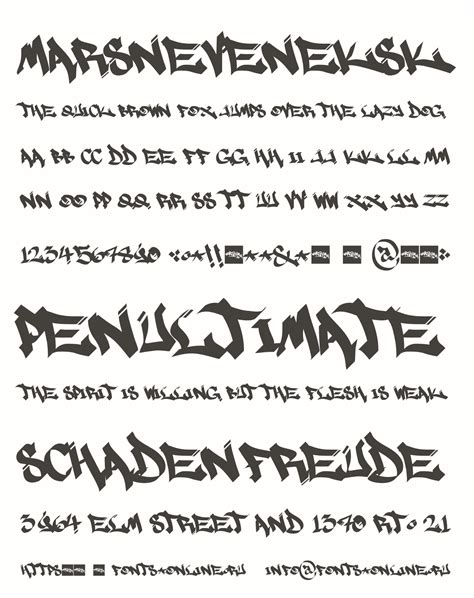 MARSNEVENEKSK
THE QUICK BROWN FOX JUMPS OVER THE LAZY DOG
AA BB CC DD EE FF GG HH II JJ KK LL MM
NN OO PP QQ RR SS TT UU VV WW XX YY ZZ
1234567890 !! & @
PENULTIMATE
THE SPIRIT IS WILLING BUT THE FLESH IS WEAK
SCHADENFREUDE
3964 ELM STREET AND 1370 RT. 21
HTTPS FONTS-ONLINE.RU INFO@FONTS-ONLINE.RU